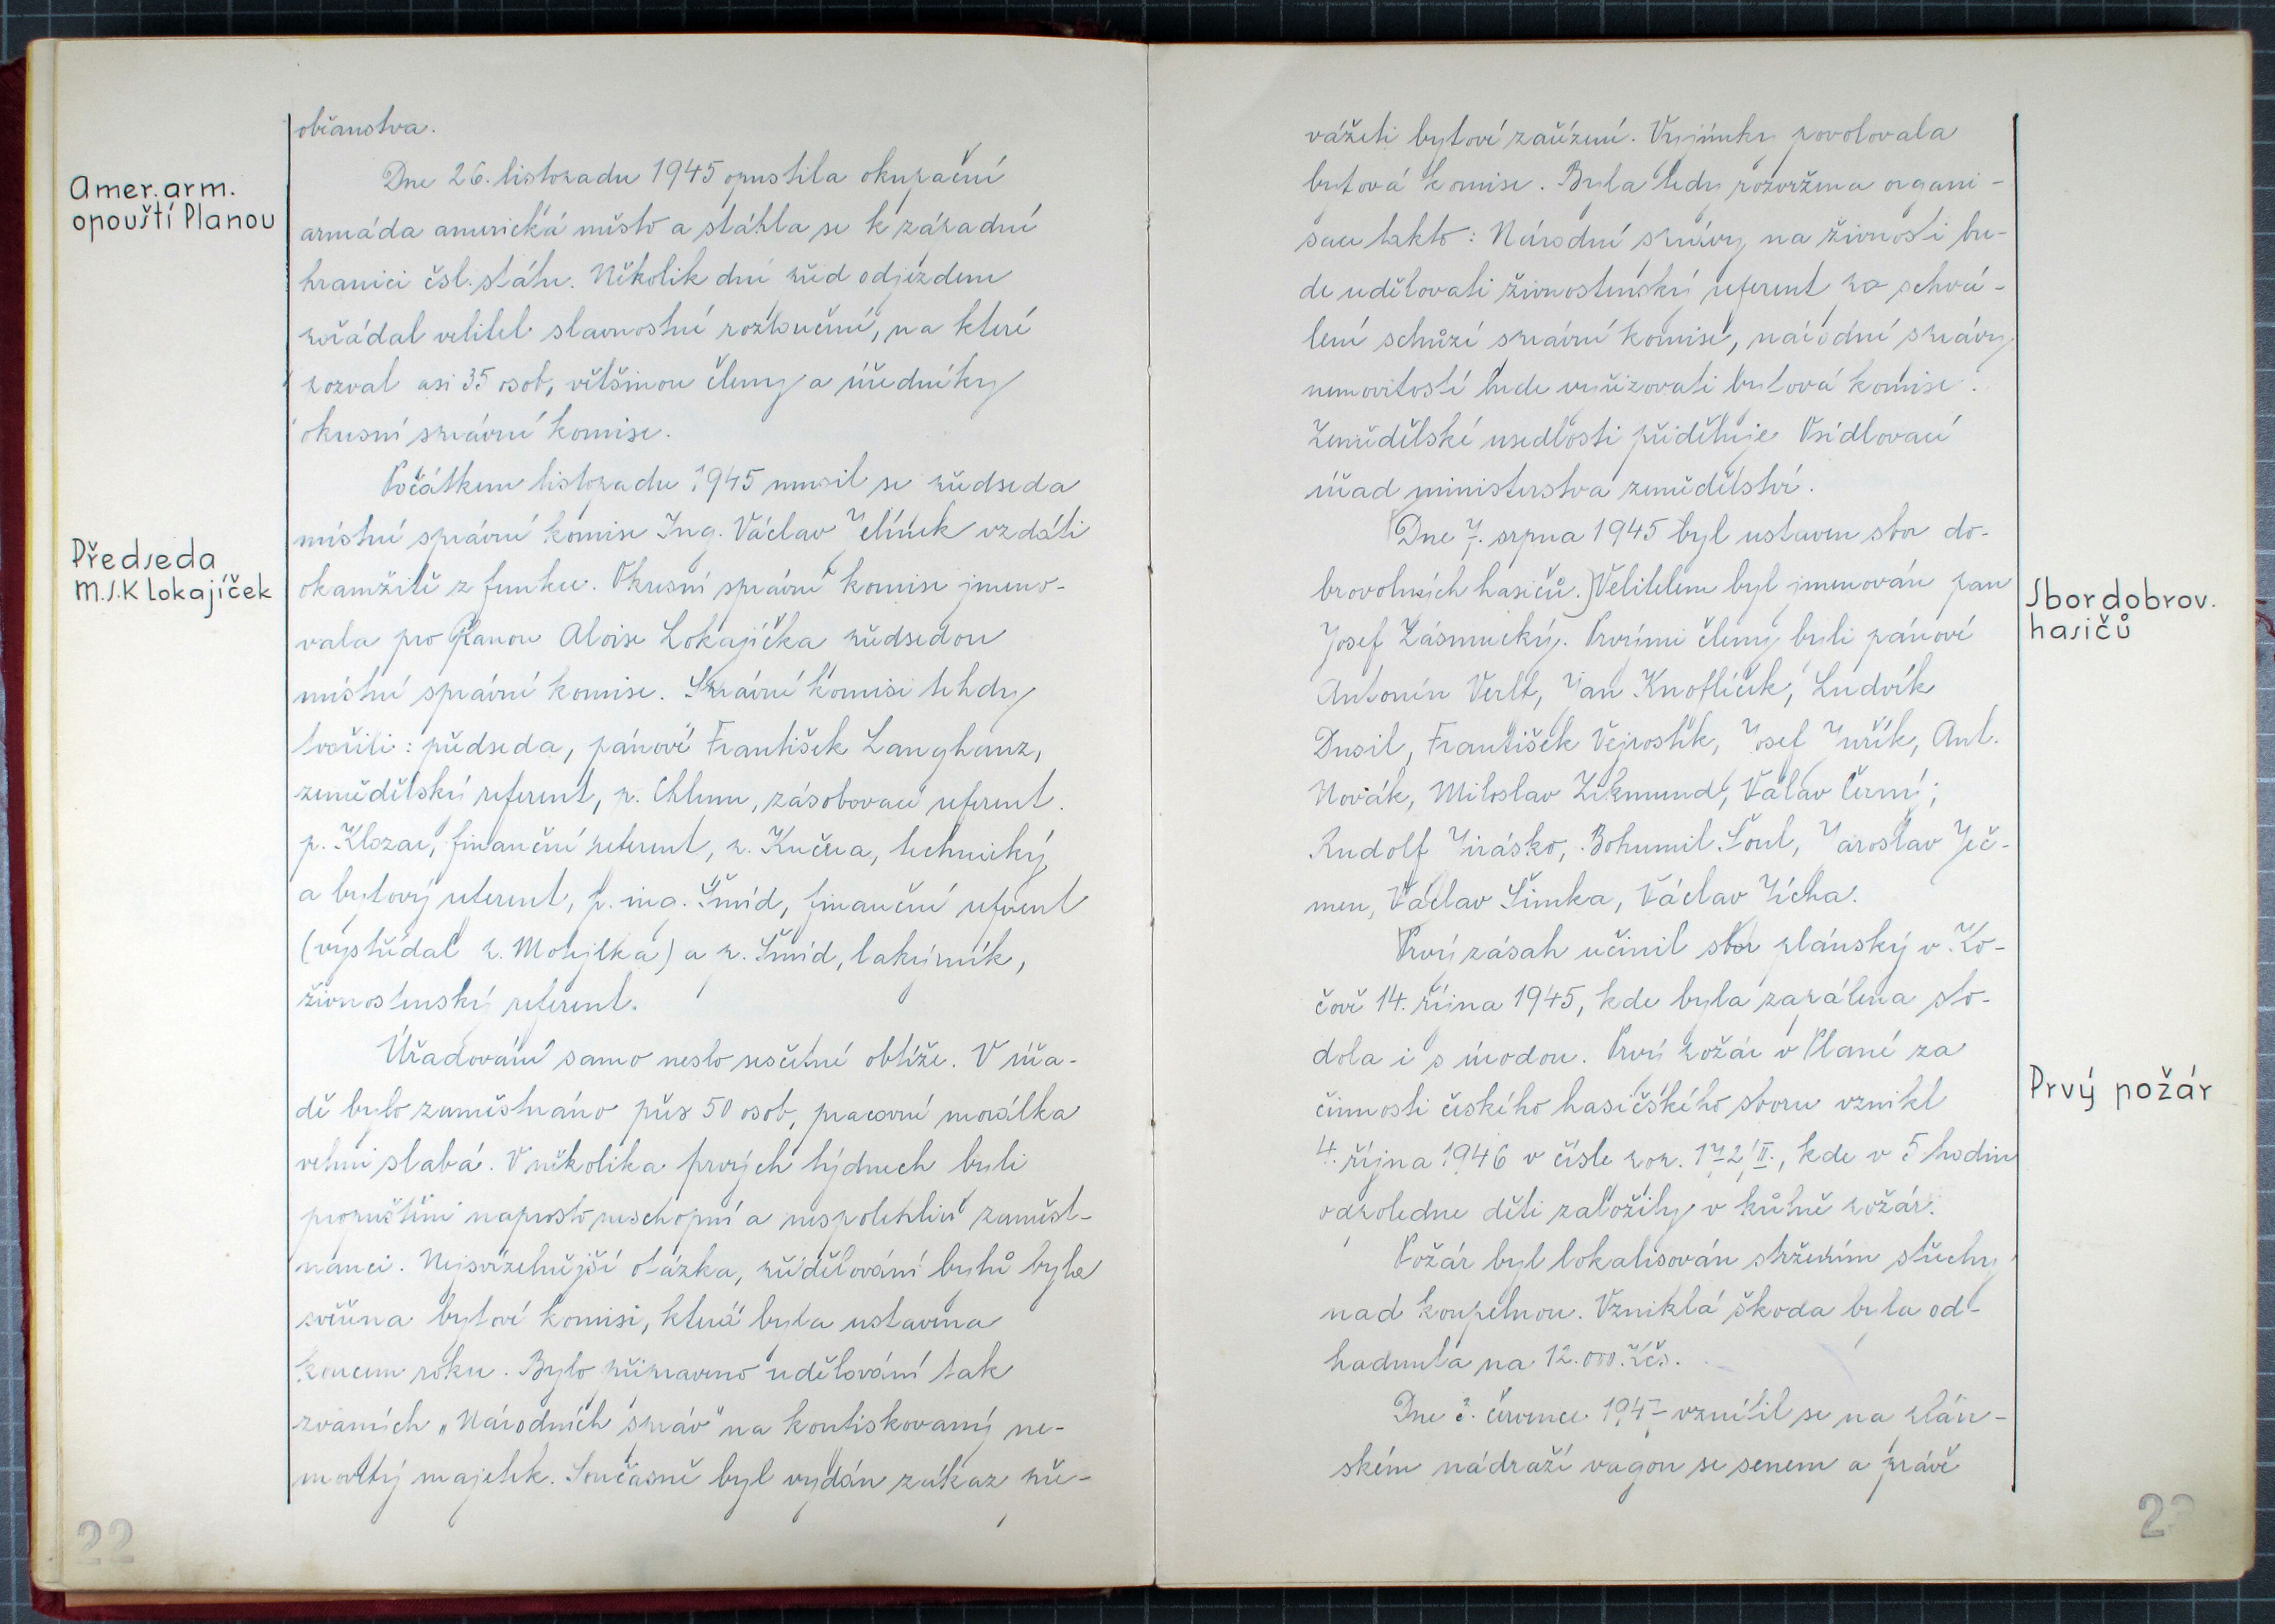 občanstva.
Amer. arm.
opouští Planou
Dne 26. listopadu 1945 opustila okupační
armáda americká město a stáhla se k západní
hranici čsl. státu. Několik dní před odjezdem
pořádal velitel slavnostní rozloučení, na které
pozval asi 35 osob, většinou členy a úředníky
okresní správní komise.
Počátkem listopadu 1945 musil se předseda
místní správní komise Ing. Václav Jelínek vzdáti
Předseda
M.S.K Lokajíček
okamžitě z funkce. Okresní správní komise jmeno-
vala pro Planou Aloise Lokajíčka předsedou
místní správní komise. Správní komisi tehdy
tvořili: předseda, pánové František Langhanz,
zemědělský referent, p. Chlum, zásobovací referent.
p. Klozar, finanční referent, p. Kučera, technický
a bytový referent, p. ing. Šmíd, finanční referent
(vystřídal p. Motejlka) a p. Šmíd, lakýrník,
živnostenský referent.
Úřadování samo neslo nesčetné obtíže. V úřa-
dě bylo zaměstnáno přes 50 osob, pracovní morálka
velmi slabá. V několika prvých týdnech byli
propuštěni naprosto neschopní a nespolehliví zaměst-
nanci. Nejsvízelnější otázka, přidělování bytů byla
svěřena bytové komisi, která byla ustavena
koncem roku. Bylo připraveno udělování tak
zvaných „Národních správ" na konfiskovaný ne-
movitý majetek. Současně byl vydán zákaz pře-
22
vážeti bytové zařízení. Vyjímky povolovala
bytová komise. Byla tedy rozvržena organi-
sace takto: Národní správy na živnosti bu-
de udělovati živnostenský referent po schvá-
lení schůzí správní komise, národní správy
nemovitostí bude vyřizovati bytová komise.
Zemědělské usedlosti přiděluje Osidlovací
úřad ministerstva zemědělství.
Dne 7. srpna 1945 byl ustaven sbor do-
brovolných hasičů.) Velitelem byl jmenován pan
Sbor dobrov.
hasičů
Josef Zásmucký. Prvními členy byli pánové
Antonín Verlt, Jan Knoflíček, Ludvík
Dusil, František Vejrostík, Josef Juřík, Ant.
Novák, Miloslav Zikmund, Válav Černý;
Rudolf Jirásko, Bohumil Šoul, Jaroslav Ječ-
men, Václav Šimka, Václav Zícha.
Prvý zásah učinil sbor plánský v Ko-
čově 14. října 1945, kde byla zapálena sto-
dola i s úrodou. Prvý požár v Plané za
Prvý požár
činnosti českého hasičského sboru vznikl
4. října 1946 v čísle pop. 172/II., kde v 5 hodin
odpoledne děti založily v kůlně požár.
Požár byl lokalisován stržením střechy
nad koupelnou. Vzniklá škoda byla od-
hadnuta na 12.000. Kčs.
Dne 3. července 1947 vznítil se na plán-
ském nádraží vagon se senem a právě
23